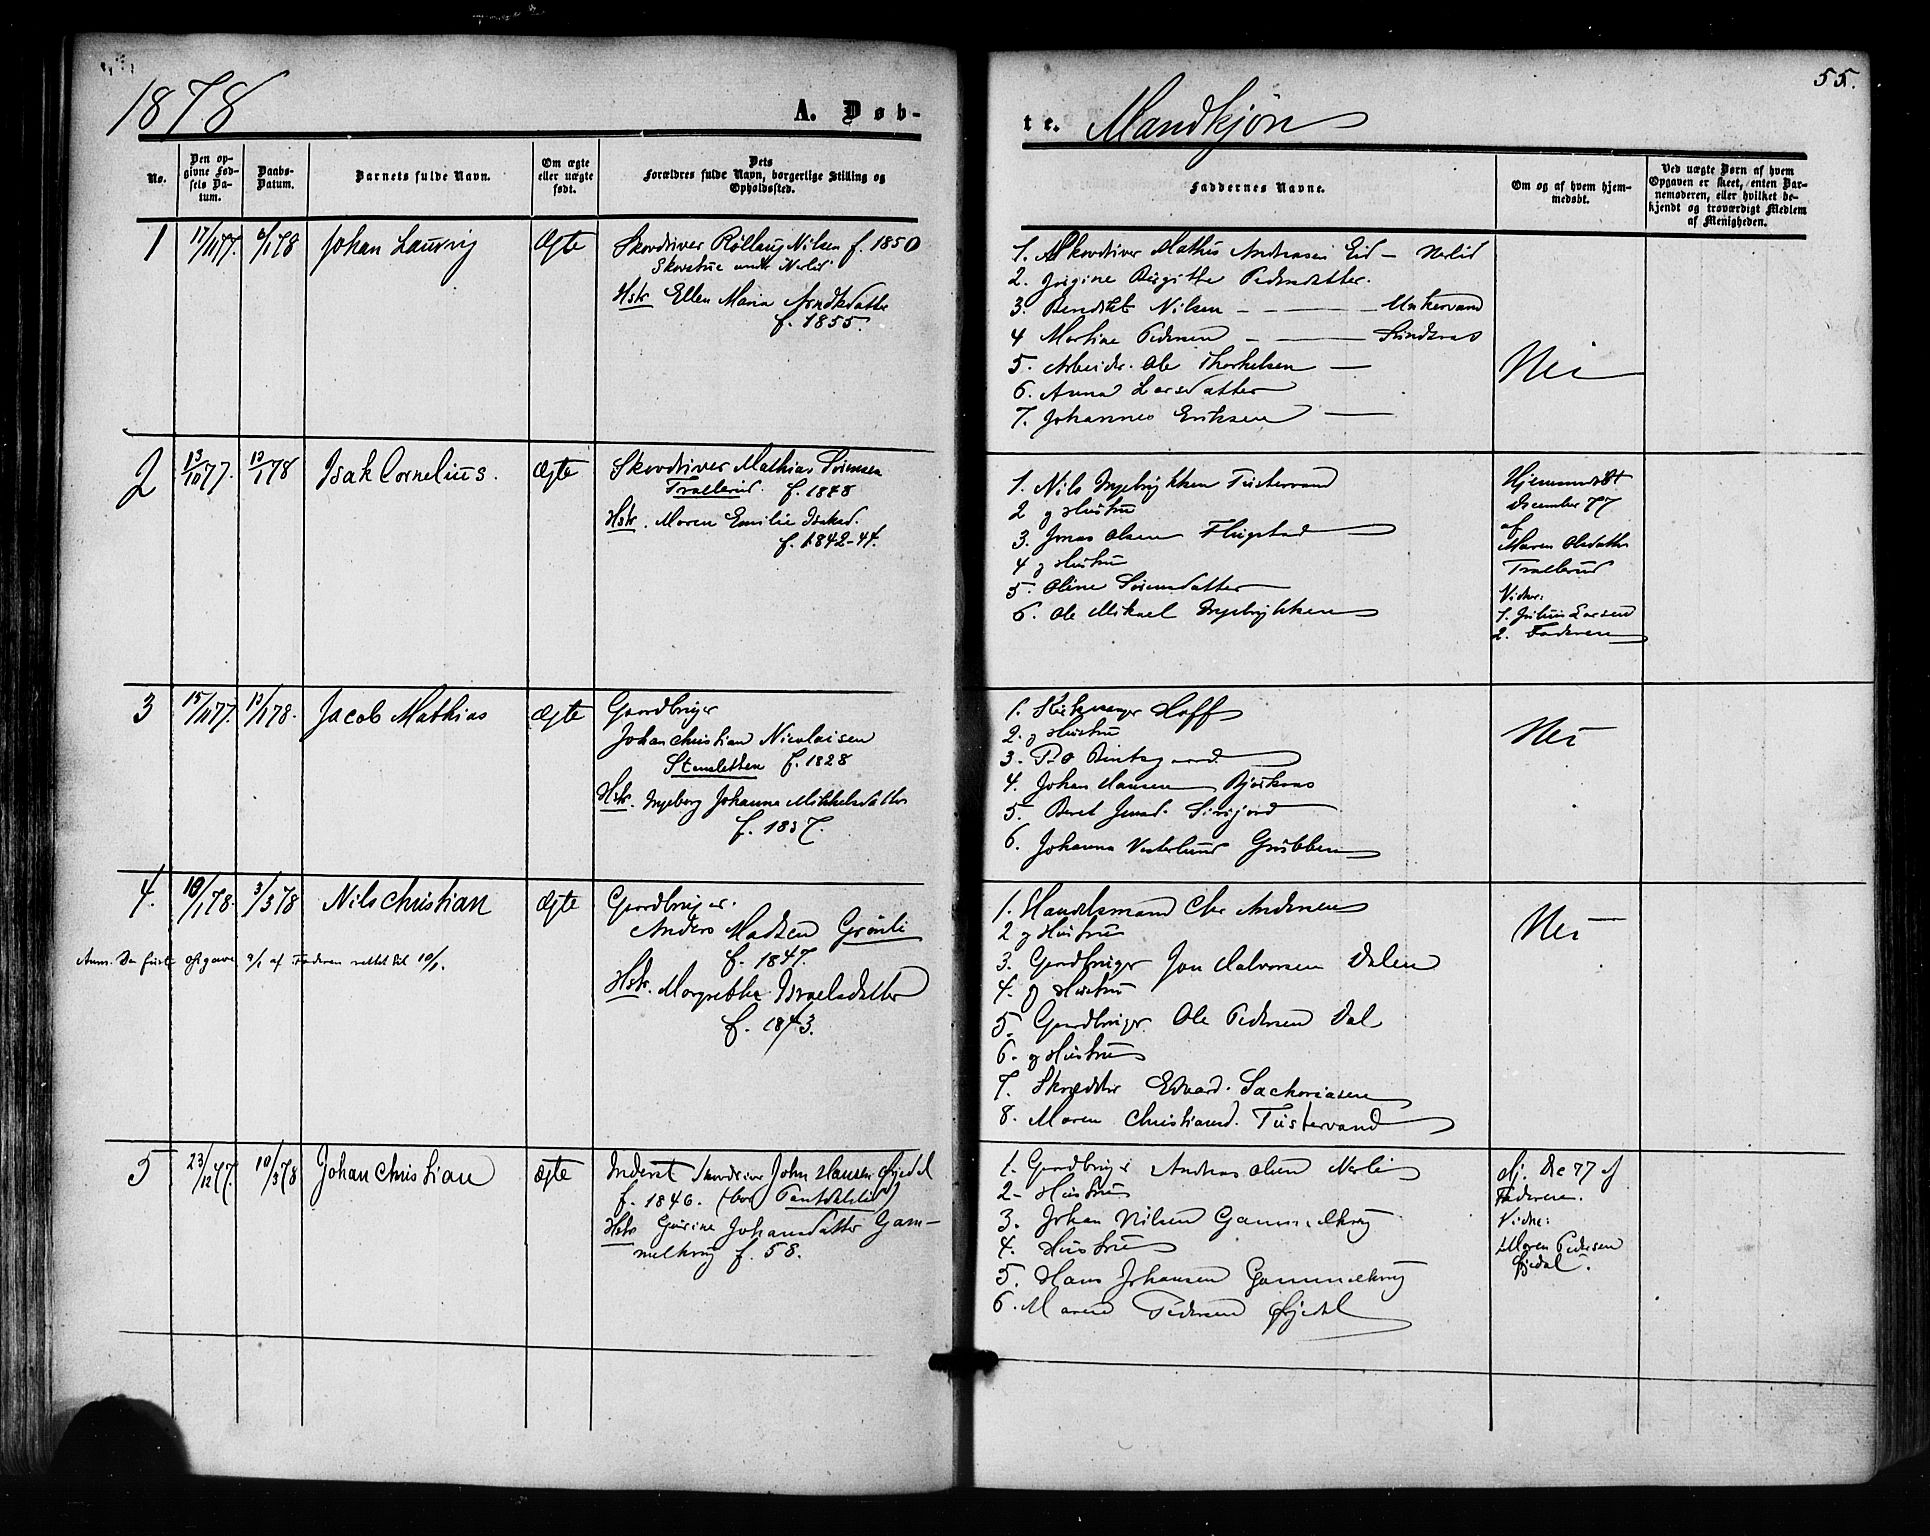 1878
A. Døb-
No.
Den op-
givne Fød-
sels Da-
tum.
Daabs-
Datum.
Barnets fulde Navn.
Om ægte
eller uægte
født.
Dets
Forældres fulde Navn, borgerlige Stilling og
Opholdssted.
1
17/11 77.
6/1 78
Johan Laurvig
Ægte
Nilsen f. 1850
Hstr Ellen Maria
f. 1855.
2
13/10 77.
13/1 78
Isak Cornelius.
Ægte
Mathias Sørensen
Trallerud. f. 1848
Hstr. Maren Emilie Isaksd.
f. 1842-44.
3
15/11 77.
13/1 78.
Jacob Mathias
Ægte
Gaardbruger
Johan Christian Nicolaisen
Stensletten f. 1828
Hstr. Ingeborg Johanna Mikkelsdatter
f. 1837.
4.
10/1 78.
3/3 78
Nils Christian
Ægte
Gaardbruger.
Anders Madsen Grønli
f. 1847.
Anm. Den først opgivne 9/1 af Faderen rettet til 10/1.
Hstr. Margrethe Israelsdatter
f. 1843.
5
23/12 77.
10/3 78
Johan Christian
Ægte
Inderst John Hansen Øjedal
f. 1846. (bor
Hstr Johansdatter Gam-
melkrog f. 58.
55.
te. Mandkjøn
Faddernes Navne.
Om og af hvem hjem-
medøbt.
Ved uægte Børn af hvem
Opgaven er skeet, enten Bar-
nemoderen, eller hvilket be-
kjendt og troværdigt Medlem
af Menigheden.
1. Mathis Andreasen Eid - Nerlid
2. Birgitte Pedersdatter.
3. Benedikt Nilsen - Unkervand
4 Martine Pedersen -
5. Arbeider. Ole Thorkelsen
6. Anna Larsdatter
7. Johannes Eriksen
Nei
1. Nils Ingebrigtsen Tustervand
2 og Hustru
3. Jonas Olsen
4 og Hustru
5. Oline Sørensdatter
6. Ole Mikael Ingebrigtsen
Hjemmedøbt
December 77
af
Maren Olsdatter
Trallerud
Vidner:
1. Julius Larsen
2. Faderen
1. Kirkesanger Hoff
2. og Hustru
3. P. O.
4. Johan Hansen Bjørkaas
5. Beret Jonasd.
6. Johanna Vesterlund Grubben
Nei
1. Handelsmand Chr Andersen
2 og Hustru
3. Gaardbruger Jon Halvorsen Dalen
4. og Hustru
5. Gaardbruger. Ole Pedersen Dal
6. og Hustru
7. Skrædder Edvard Sachariasen
8. Maren Christiansd. Tustervand
Nei
1. Gaardbruger Andreas Olsen Nerli
2 - Hustru
3. Johan Nilsen Gammelkrog
4. Hustru
5. Hans Johansen Gammelkrog
6. Maren Pedersen Øjedal
Hj. Dec 77 af
Faderen.
Vidne:
Maren Pedersen
Øjedal.